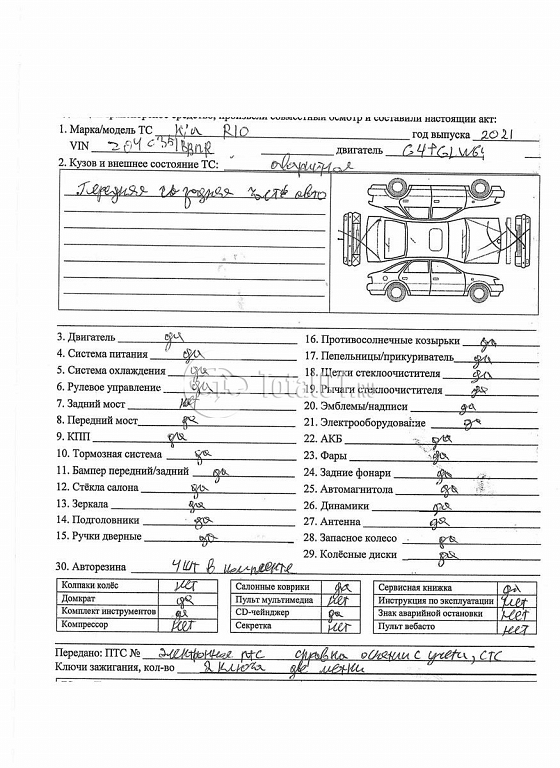 средство, произвели совместный осмотр и составили настоящий акт:
1. Марка/модель ТС Kia RIO год выпуска 2021
VIN двигатель
2. Кузов и внешнее состояние ТС: аварийное
Передняя задняя часть авто
3. Двигатель да
4. Система питания да
5. Система охлаждения да
6. Рулевое управление да
7. Задний мост нет
8. Передний мост да
9. КПП да
10. Тормозная система да
11. Бампер передний/задний да
12. Стёкла салона да
13. Зеркала да
14. Подголовники да
15. Ручки дверные да
16. Противосолнечные козырьки да
17. Пепельницы/прикуриватель да
18. Щетки стеклоочистителя да
19. Рычаги стеклоочистителя да
20. Эмблемы/надписи да
21. Электрооборудование да
22. АКБ да
23. Фары да
24. Задние фонари да
25. Автомагнитола да
26. Динамики да
27. Антенна да
28. Запасное колесо да
29. Колёсные диски да
30. Авторезина 4 шт в комплекте
Колпаки колёс нет
Домкрат да
Комплект инструментов да
Компрессор нет
Салонные коврики да
Пульт мультимедиа нет
CD-чейнджер да
Секретка нет
Сервисная книжка да
Инструкция по эксплуатации нет
Знак аварийной остановки нет
Пульт вебасто нет
Передано: ПТС № электронное птс справка о снятии с учета, СТС
Ключи зажигания, кол-во 2 ключа две метки